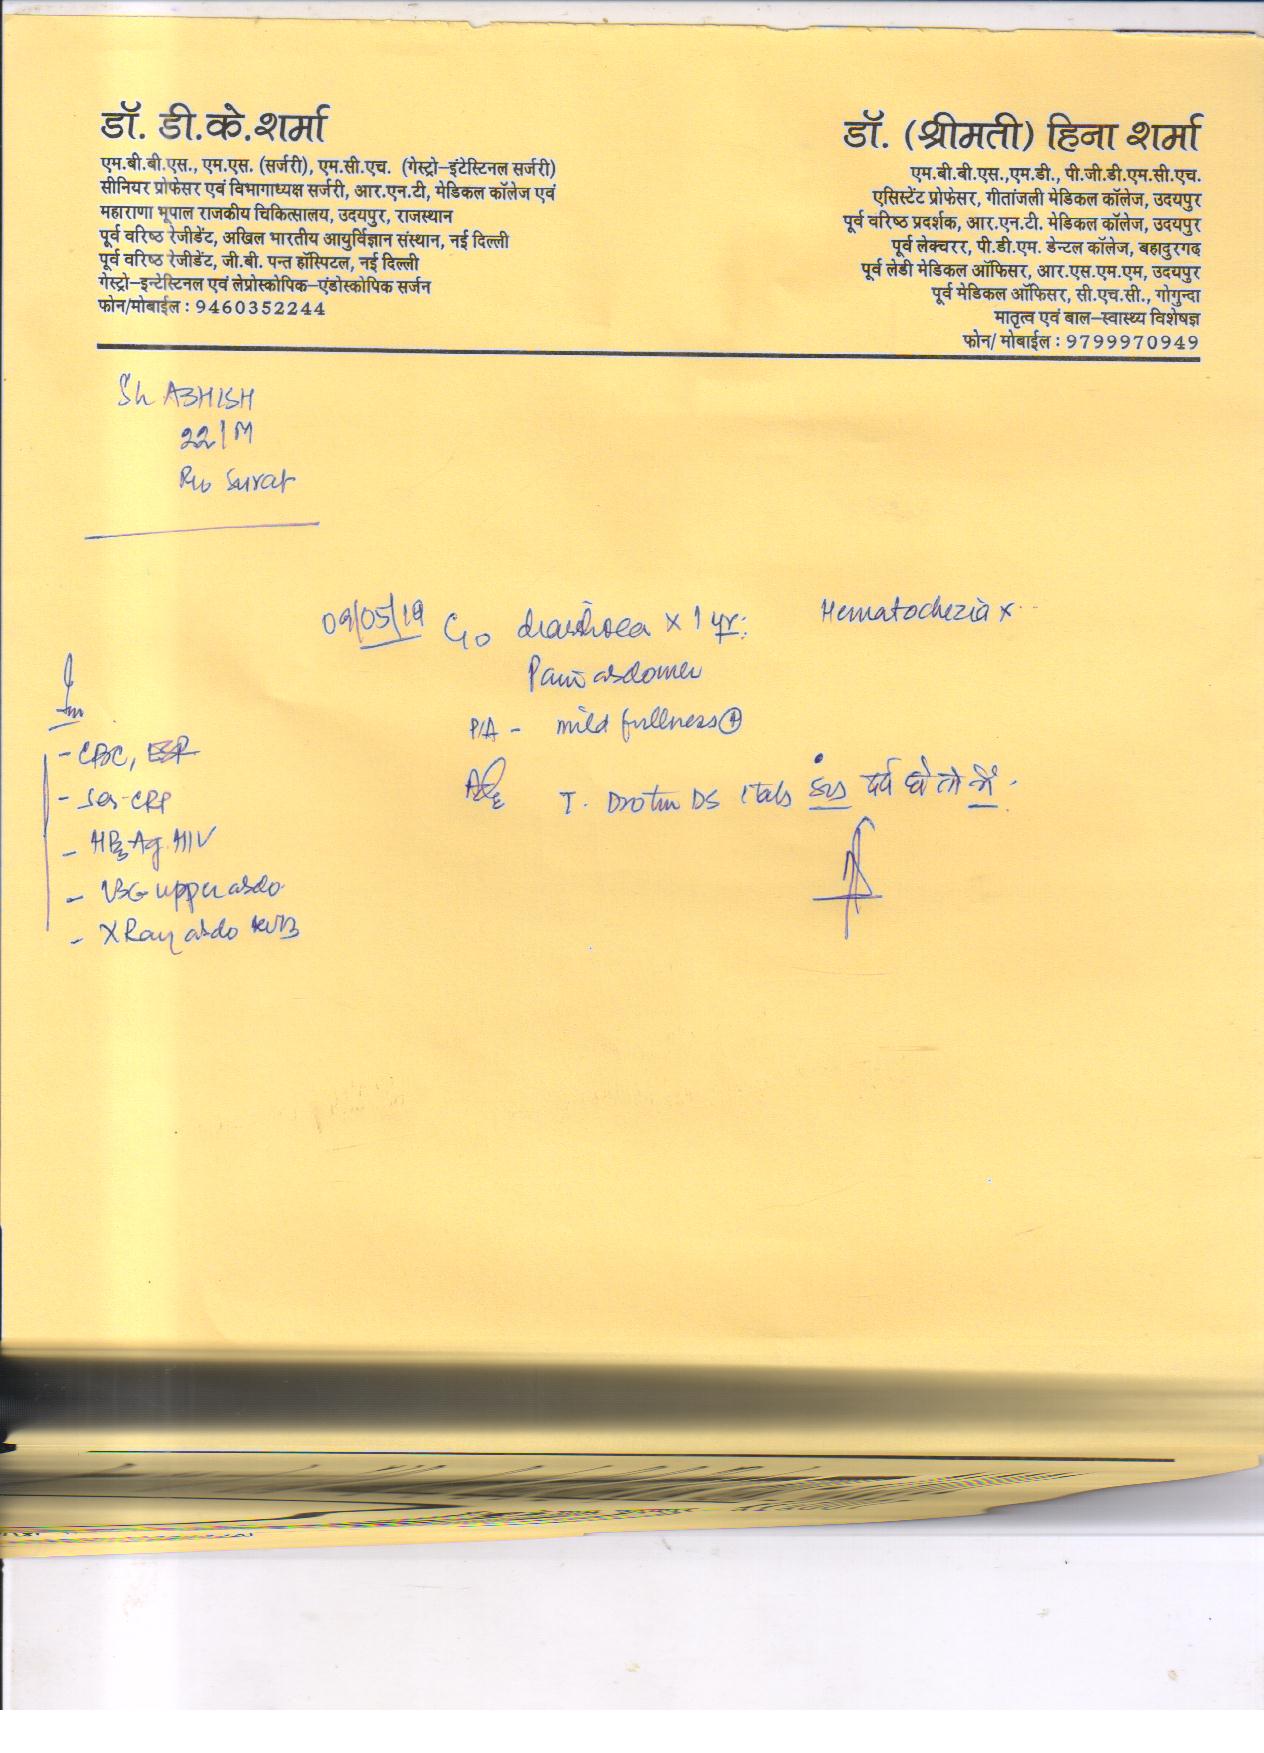 डॉ. डी.के.शर्मा
एम.बी.बी.एस., एम.एस. (सर्जरी), एम.सी.एच. (गेस्ट्रो-इंटेस्टिनल सर्जरी)
सीनियर प्रोफेसर एवं विभागाध्यक्ष सर्जरी, आर.एन.टी, मेडिकल कॉलेज एवं
महाराणा भूपाल राजकीय चिकित्सालय, उदयपुर, राजस्थान
पूर्व वरिष्ठ रेजीडेंट, अखिल भारतीय आयुर्विज्ञान संस्थान, नई दिल्ली
पूर्व वरिष्ठ रेजीडेंट, जी.बी. पन्त हॉस्पिटल, नई दिल्ली
गेस्ट्रो-इन्टेस्टिनल एवं लेप्रोस्कोपिक-एंडोस्कोपिक सर्जन
फोन/मोबाईल : 9460352244
डॉ. (श्रीमती) हिना शर्मा
एम.बी.बी.एस.,एम.डी., पी.जी.डी.एम.सी.एच.
एसिस्टेंट प्रोफेसर, गीतांजली मेडिकल कॉलेज, उदयपुर
पूर्व वरिष्ठ प्रदर्शक, आर.एन.टी. मेडिकल कॉलेज, उदयपुर
पूर्व लेक्चरर, पी.डी.एम. डेन्टल कॉलेज, बहादुरगढ़
पूर्व लेडी मेडिकल ऑफिसर, आर.एस.एम.एम, उदयपुर
पूर्व मेडिकल ऑफिसर, सी.एच.सी., गोगुन्दा
मातृत्व एवं बाल-स्वास्थ्य विशेषज्ञ
फोन/ मोबाईल : 9799970949
Sh ABHISH
22/M
R/o Surat
09/05/19 C/o diarrhoea x 1 yr: Hematochezia x
Pain abdomen
P/A - mild fullness ⊕
T. Drotin DS 1 tab दर्द हो तो लें
Inv
- CBC,
- Ser-CRP
- HBsAg. HIV
- USG upper abdo
- X Ray abdo KUB